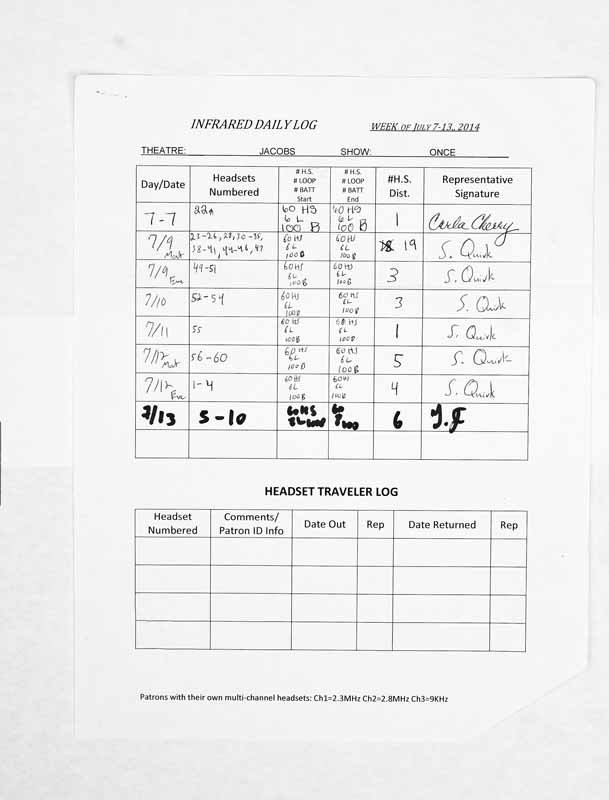 INFRARED DAILY LOG WEEK OF JULY 7-13, 2014
THEATRE: JACOBS SHOW: ONCE
Day/Date Headsets Numbered # H.S. # LOOP # BATT Start # H.S. # LOOP # BATT End #H.S. Dist. Representative Signature
7-7 22 60 HS 6 L 100 B 60 HS 6 L 100 B 1 Carla Cherry
7/9 Mat 23-26, 28, 30-35, 38-41, 44-46, 47 60 HS 6L 100B 60 HS 6L 100B 19 S. Quirk
7/9 Eve 49-51 60 HS 6L 100B 60 HS 6L 100B 3 S. Quirk
7/10 52-54 60 HS 6L 100B 60 HS 6L 100B 3 S. Quirk
7/11 55 60 HS 6L 100B 60 HS 6L 100B 1 S. Quirk
7/12 Mat 56-60 60 HS 6L 100B 60 HS 6L 100B 5 S. Quirk
7/12 Eve 1-4 60 HS 6L 100B 60 HS 6L 100B 4 S. Quirk
7/13 5-10 60 HS 60 100 6 J.F
HEADSET TRAVELER LOG
Headset Numbered Comments/ Patron ID Info Date Out Rep Date Returned Rep
Patrons with their own multi-channel headsets: Ch1=2.3MHz Ch2=2.8MHz Ch3=9KHz